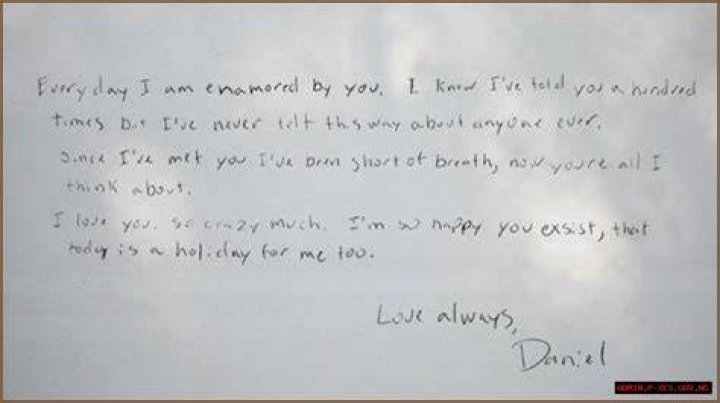 Everyday I am enamored by you. I know I've told you a hundred
times but I've never felt this way about anyone ever.
Since I've met you I've been short of breath, now you're all I
think about.
I love you. So crazy much. I'm so happy you exsist, that
today is a holiday for me too.
Love always,
Daniel